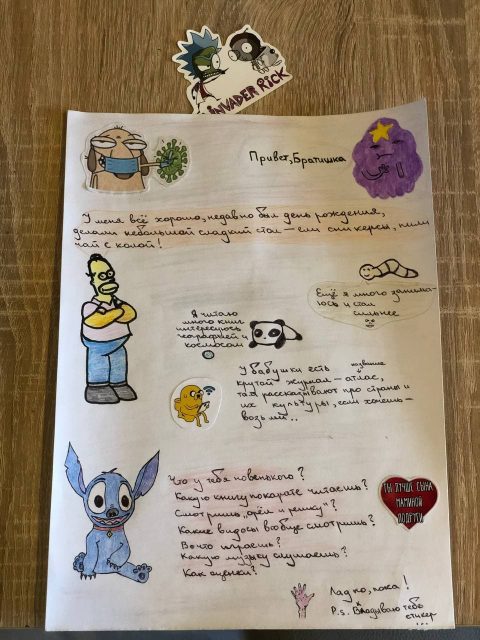 INVADER RICK
Привет, Братишка
У меня всё хорошо, недавно был день рождения,
делали небольшой сладкий стол – ели сникерсы, пили
чай с колой!
Ещё я много занима-
юсь и стал
сильнее
Я читаю
много книг
интересуюсь
географией и
космосом
У бабушки есть название
крутай журнал – атлас,
там рассказывают про страны и
их культуры, если хочешь –
возьми..
Что у тебя новенького?
Какую книгу покарате читаешь?
Смотришь орёл и решку?
Какие видосы вообще смотришь?
Во что играешь?
Какую музыку слушаешь?
Как оценки?
ТЫ ЛУЧШЕ СЫНА
МАМИНОЙ
ПОДРУГИ
Ладно, пока!
P.s. Вкладываю тебе
стикер
...